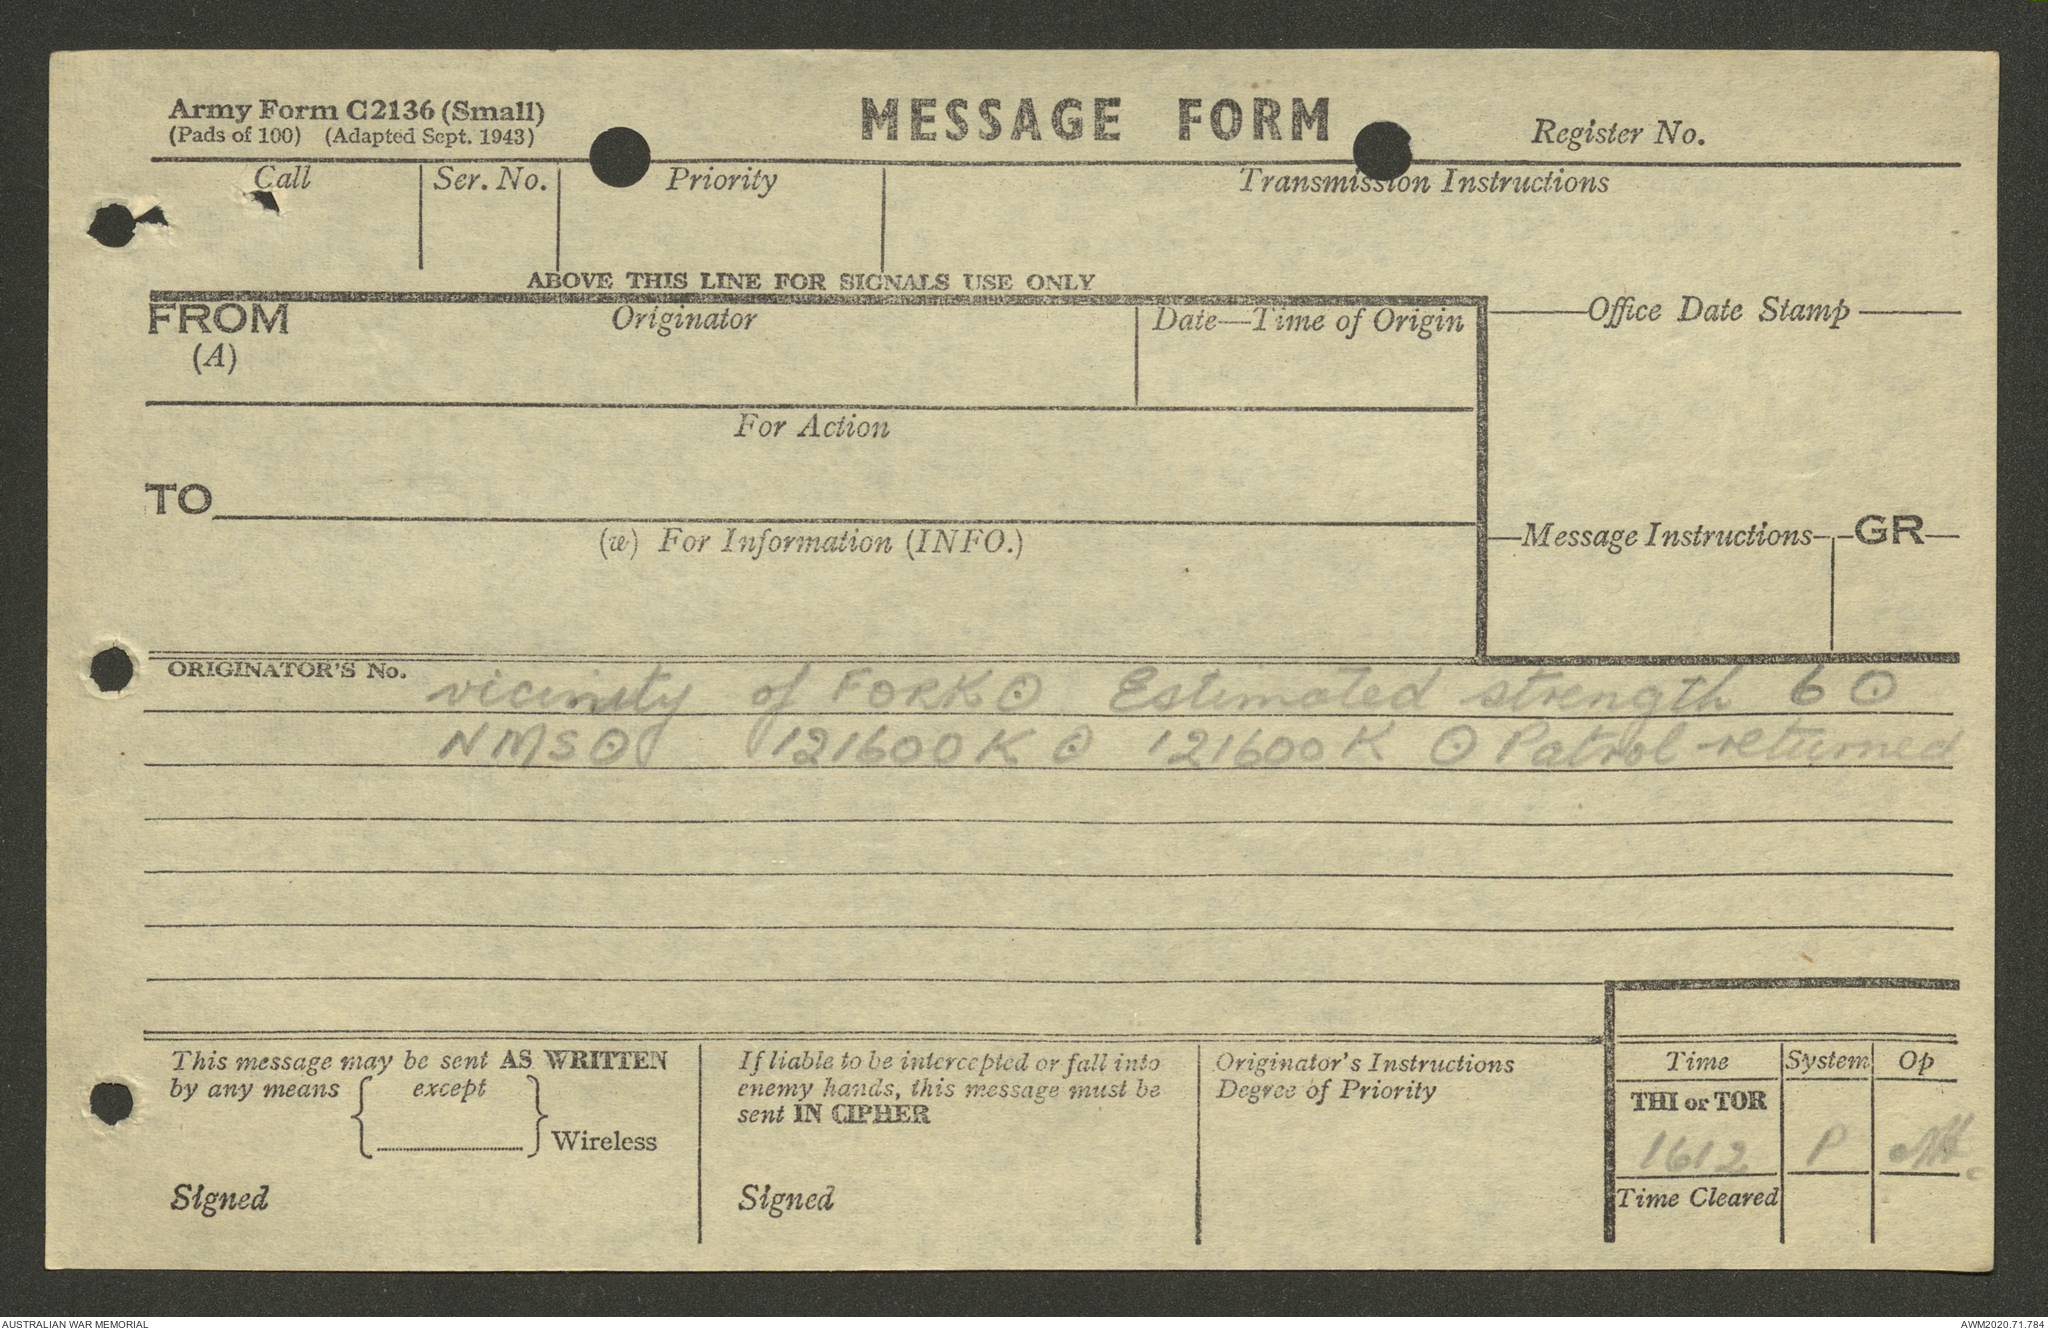 Army Form C2136 (Small)
(Pads of 100) (Adapted Sept. 1943)
MESSAGE FORM
Register No.
Call
Ser. No.
Priority
Transmission Instructions
ABOVE THIS LINE FOR SIGNALS USE ONLY
FROM
(A)
Originator
Date—Time of Origin
Office Date Stamp
For Action
TO
(w) For Information (INFO.)
Message Instructions
GR
ORIGINATOR'S No.
vicinity of FORK ⊙ Estimated strength 6 ⊙
NMS ⊙ 121600K ⊙ 121600K ⊙ Patrol returned
This message may be sent AS WRITTEN
by any means { except } Wireless
Signed
If liable to be intercepted or fall into
enemy hands, this message must be
sent IN CIPHER
Signed
Originator's Instructions
Degree of Priority
Time System Op
THI or TOR
1612 P
Time Cleared
AUSTRALIAN WAR MEMORIAL
AWM2020.71.784